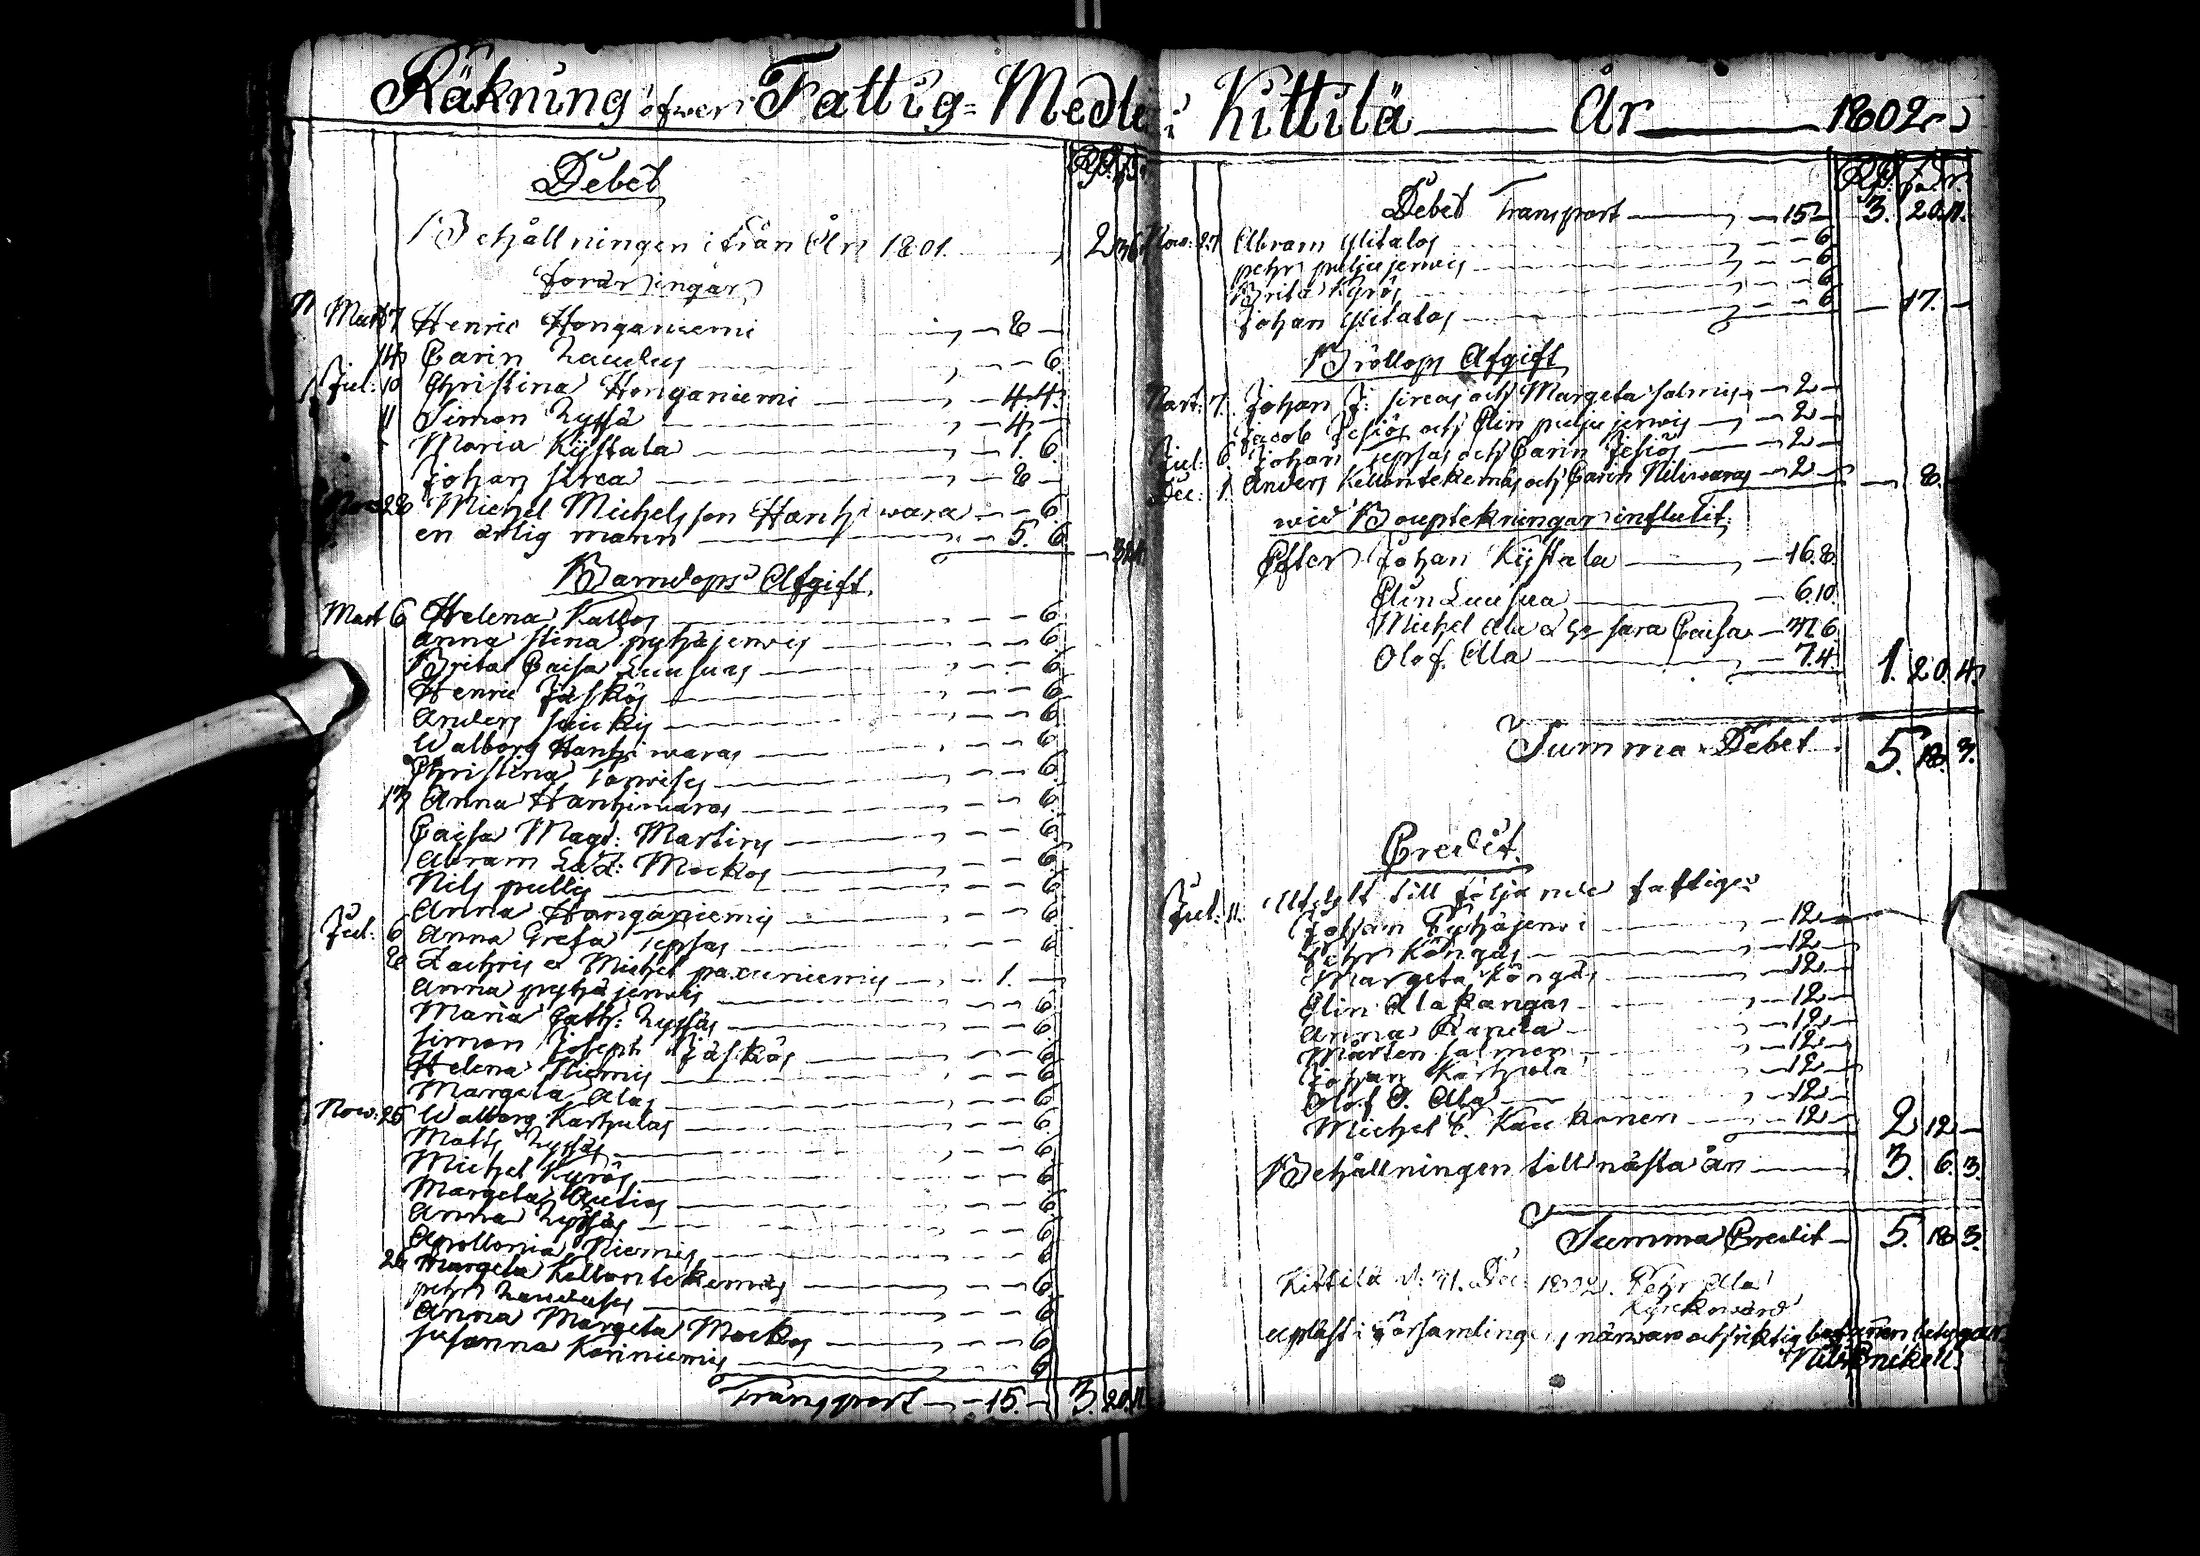 Räkning öfwer Fattig-Medle i Kittilä År 1802
Debet
Behållningen ifrån År 1801. 2 36
Mart 7 Henric Honganiemi 8
14 Carin Laudus 6
Jul: 10 Christina Honganiemi 4 4
11 Simon Zyssä 4
Maria Kijstala 1. 6
Johan sirca 8
28 Michel Michelsson Hanhiwara 6
en ärlig mann 5. 6
Barndops Afgift.
Mart 6 Helena Kallos 6
Anna Stina pyhäjerwis 6
Brita Caisa Luusuas 6
Henric Jäskös 6
Anders 6
Walborg Hanhiwaras 6
Christina 6
13 Anna Hanhiwaras 6
Caisa Magd: Martins 6
Abram Lad: Mockos 6
Nils pullis 6
Anna Honganiemis 6
Jul: 6 Anna Greta sepsas 6
8 Zachris & Michel paxuniemis 1.
Anna pyhäjerwis 6
Maria Cath: Zyssäs 6
Simon Joseph Jäskös 6
Helena Niemis 6
Margeta Alas 6
Now: 25 Walborg Karhulas 6
Matts Zyssäs 6
Michel Kyrös 6
Margeta Autios 6
Anna Zyssäs 6
Apollonia Niemis 6
26 Margeta Kellontekemäs 6
pehr 6
Anna Margeta Mockos 6
Susanna Koriniemis 6
Transport 15. 3. 20. 11
Debet Transport 15 3. 20. 11.
Now: 27 Abram Ylitalos 6
pehr puljujerwis 6
Brita Kyrös 6
Johan Ylitalos 6 17.
Bröllops Afgift
Mart: 7. Johan J: sircas och Margeta salmis 2
Jacob Jesiös och Elin puljujerwis 2
Jul: 6. Johan sepsas och Carin Jesiös 2
Dec: 1. Anders Kellontekemäs och Carin Niliwaras 2 8.
wid Bouptekningar influtit.
Efter Johan Kijstala 16. 8.
Elin Luusua 6. 10.
Michel Ala & sara Caisa 37. 6.
Olof Ala 7. 4. 1. 20. 4.
Summa Debet 5. 18. 3.
Credit.
Jul: 11. Utdelt till följande fattige
Johan Pyhäjerwi 12
Pehr Köngäs 12
Margeta Köngäs 12
Elin Alakangas 12
Anna 12
Mårten salmen 12
Johan Karhula 12
Olof O. Ala 12
Michel C. Kaukonen 12 2 12
Behållningen till nästa år 3. 6. 3.
Summa Credit 5. 18 3.
Kittilä d: 31. Dec: 1802. Pehr Ala
Kyrckowärd
upläst i Församlingens närwaro och riktig befunnen betygar
Nils